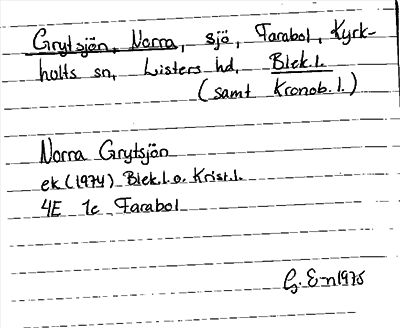 Grytsjön, Norra, sjö, Farabol, Kyrk-
hults sn, Listers hd, Blek.l.
(samt Kronob.l.)
Norra Grytsjön
ek (1974) Blek.l. o. Krist.l.
4E 1c Farabol
G. E-n 1975